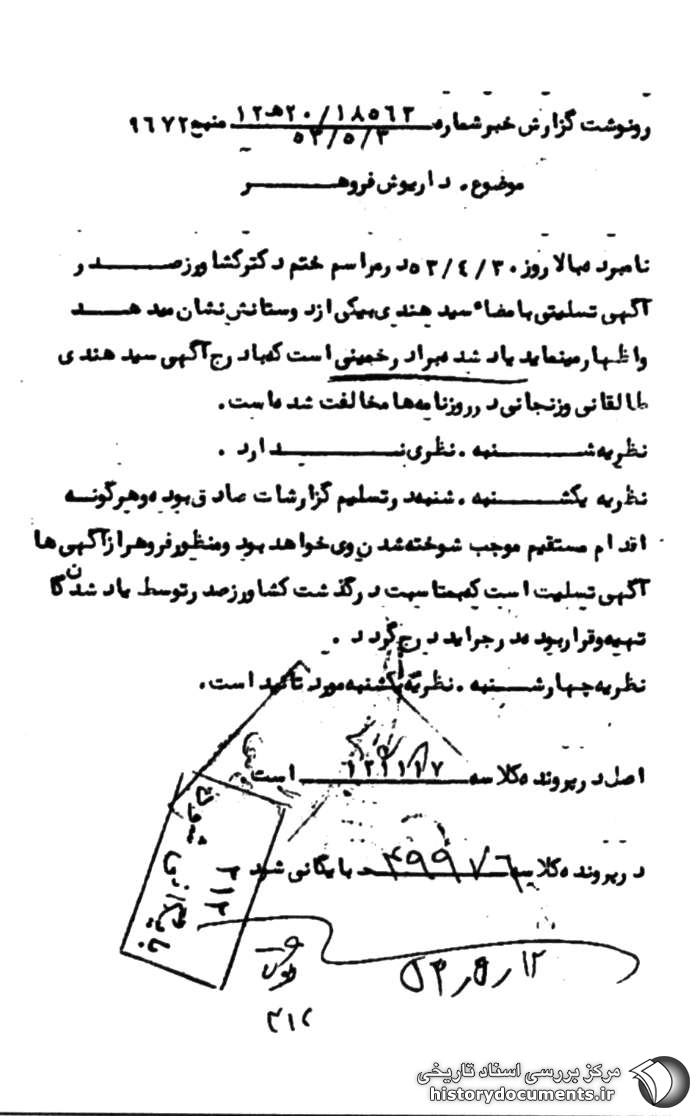 رونوشت گزارش خبر شماره ۱۸۵۶۳/۲۰هـ۱۲ منبع ۹۶۷۲
۵۳/۵/۳
موضوع. داریوش فروهـــــر
نامبرده بالا روز ۵۳/۴/۳۰ در مراسم ختم دکتر کشاورز صــدر و
آگهی تسلیتی با مضاء سید هندی بیکی از دوستانش نشان میدهــد
و اظهار مینماید یاد شده برادر خمینی است که با درج آگهی سید هندی
طالقانی و زنجانی در روزنامه‌ها مخالفت شده است.
نظریه شـــنبه. نظری نـــدارد.
نظریه یکشـــنبه. شنبه در تسلیم گزارشات صادق بوده و هرگونـه
اقدام مستقیم موجب شوخته شدن وی خواهد بود و منظور فروهر از آگهی ها
آگهی تسلیت است که بمناسبت درگذشت کشاورز صدر توسط یاد شدگان
تهیه و قرار بوده در جراید درج گردد.
نظریه چهارشـــنبه. نظریه یکشنبه مورد تائید است.
اصل در پرونده کلاسه ۱۲۲۱۱۷ است
در پرونده کلاسه ۴۹۹۷۶ بایگانی شود
بایگانی
۳۱۲
۵۳٫۵٫۱۲
۳۱۲
مرکز بررسی اسناد تاریخی
historydocuments.ir